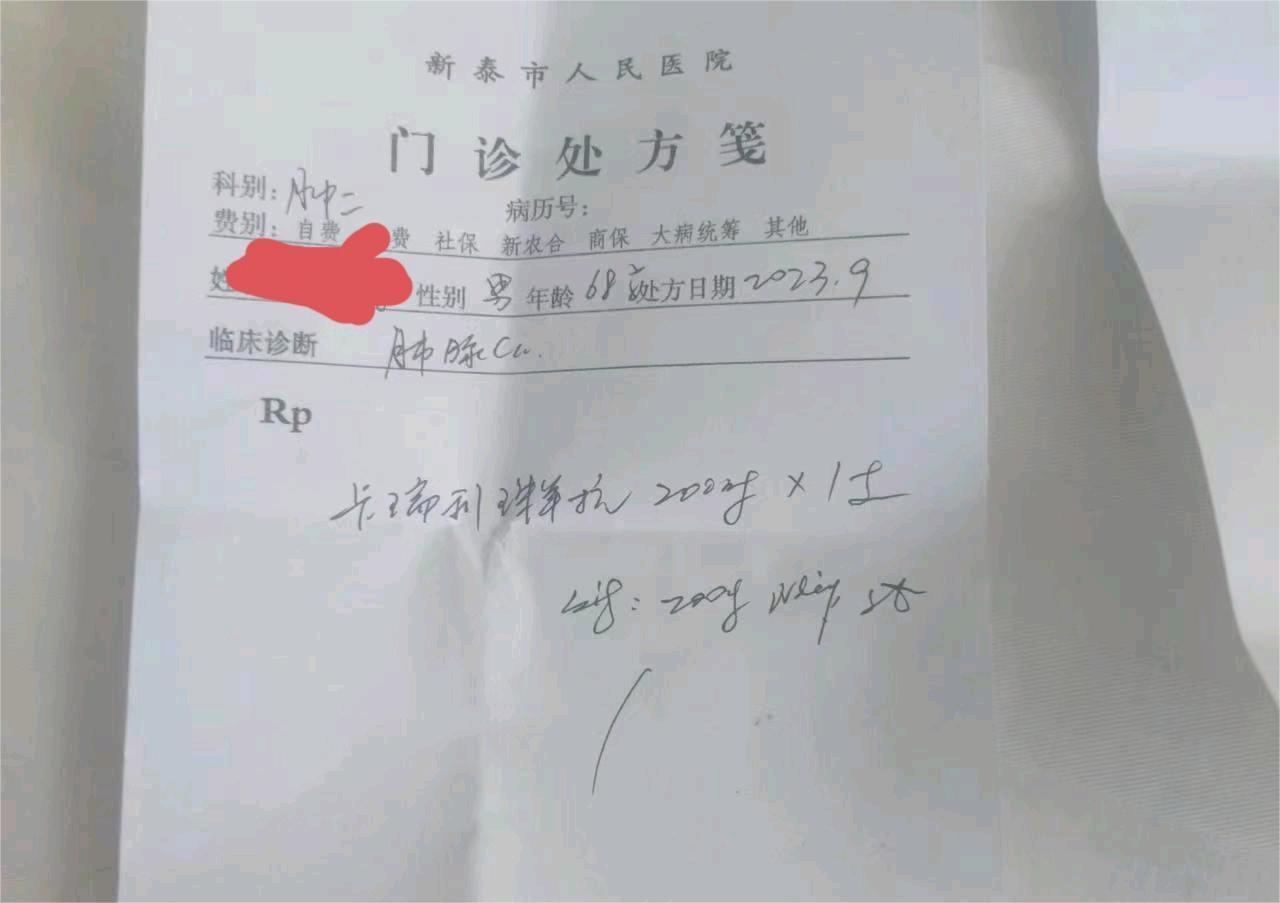 新泰市人民医院
门诊处方笺
科别: 肿二 病历号:
费别: 自费 费 社保 新农合 商保 大病统筹 其他
姓 性别 男 年龄 68岁 处方日期 2023.9
临床诊断 肺腺Ca.
Rp
卡瑞利珠单抗 200mg × 1支
200mg